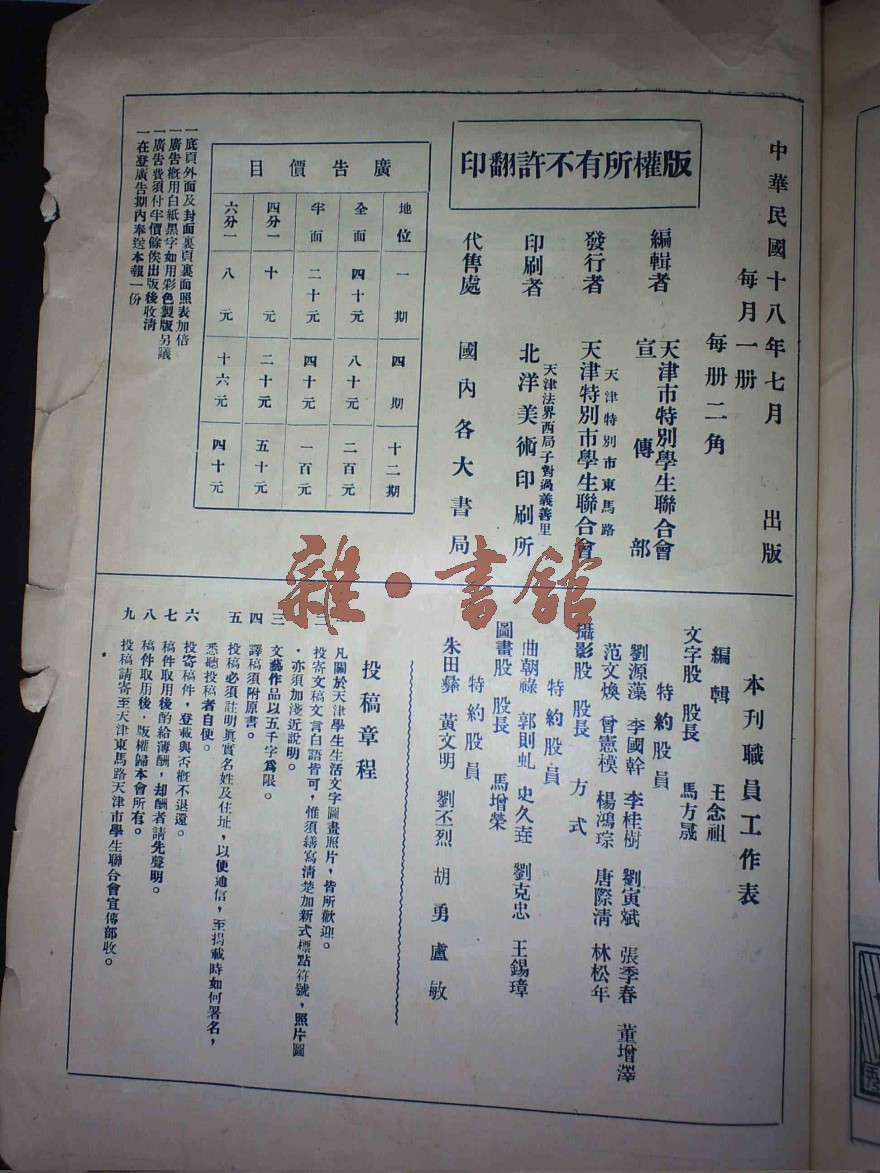 中華民國十八年七月 出版
每月一册
每册二角
版權所有不許翻印
編輯者 天津市特別學生聯合會
宣傳部
發行者 天津特別市東馬路
天津特別市學生聯合會
印刷者 天津法界西局子對過義善里
北洋美術印刷所
代售處 國內各大書局
廣告價目
地位 一期 四期 十二期
全面 四十元 八十元 二百元
半面 二十元 四十元 一百元
四分一 十元 二十元 五十元
六分一 八元 十六元 四十元
一底頁外面及封面裏頁裏面照表加倍
一廣告概用白紙黑字如用彩色製版另議
一廣告費須付半價餘俟出版後收清
一在登廣告期內奉送本報一份
本刊職員工作表
編輯 王念祖
文字股 股長 馬方晟
特約股員
劉源藻 李國幹 李桂樹 劉寅斌 張季春 董增澤
范文煥 曾憲模 楊鴻琮 唐際清 林松年
攝影股 股長 方式
特約股員
曲朝祿 郭則虬 史久垚 劉克忠 王錫璋
圖畫股 股長 馬增榮
特約股員
朱田彝 黃文明 劉丕烈 胡勇 盧敏
投稿章程
凡關於天津學生生活文字圖畫照片，皆所歡迎。
二 投寄文稿文言白語皆可，惟須繕寫清楚加新式標點符號，照片圖
，亦須加淺近說明。
三 文藝作品以五千字為限。
四 譯稿須附原書。
五 投稿必須註明眞實名姓及住址，以便通信，至揭載時如何署名，
悉聽投稿者自便。
六 投寄稿件，登載與否概不退還。
七 稿件取用後酌給薄酬，却酬者請先聲明。
八 稿件取用後，版權歸本會所有。
九 投稿請寄至天津東馬路天津市學生聯合會宣傳部收。
雜·書館